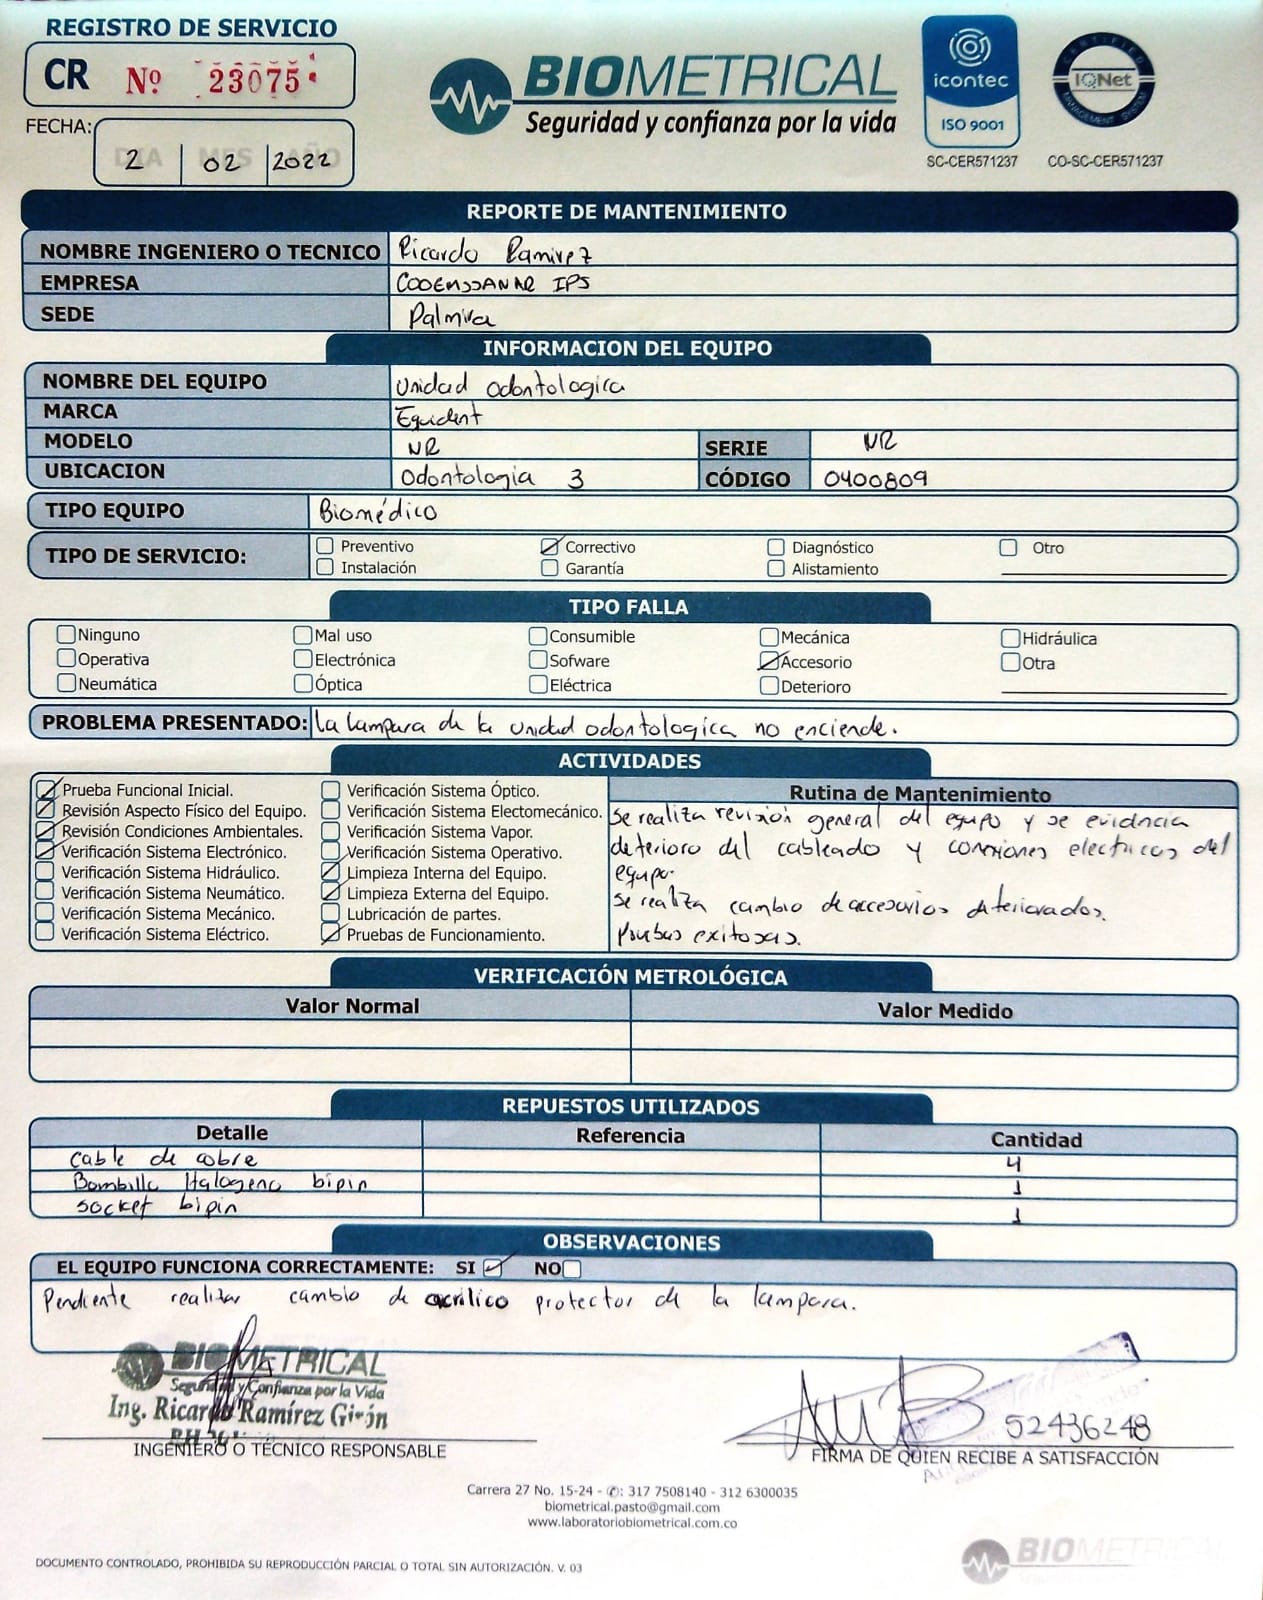 REGISTRO DE SERVICIO
CR Nº 23075
FECHA: DIA MES AÑO
2 02 2022
BIOMETRICAL
Seguridad y confianza por la vida
icontec
ISO 9001
SC-CER571237
CERTIFIED
IQNet
MANAGEMENT SYSTEM
CO-SC-CER571237
REPORTE DE MANTENIMIENTO
NOMBRE INGENIERO O TECNICO Ricardo Ramirez
EMPRESA IPS
SEDE Palmira
INFORMACION DEL EQUIPO
NOMBRE DEL EQUIPO Unidad odontologica
MARCA Equident
MODELO NR SERIE NR
UBICACION Odontologia 3 CÓDIGO 0400809
TIPO EQUIPO Biomédico
TIPO DE SERVICIO: Preventivo Correctivo Diagnóstico Otro
Instalación Garantía Alistamiento
TIPO FALLA
Ninguno Mal uso Consumible Mecánica Hidráulica
Operativa Electrónica Sofware Accesorio Otra
Neumática Óptica Eléctrica Deterioro
PROBLEMA PRESENTADO: La lampara de la unidad odontologica no enciende.
ACTIVIDADES
Prueba Funcional Inicial.
Revisión Aspecto Físico del Equipo.
Revisión Condiciones Ambientales.
Verificación Sistema Electrónico.
Verificación Sistema Hidráulico.
Verificación Sistema Neumático.
Verificación Sistema Mecánico.
Verificación Sistema Eléctrico.
Verificación Sistema Óptico.
Verificación Sistema Electomecánico.
Verificación Sistema Vapor.
Verificación Sistema Operativo.
Limpieza Interna del Equipo.
Limpieza Externa del Equipo.
Lubricación de partes.
Pruebas de Funcionamiento.
Rutina de Mantenimiento
Se realiza revisión general del equipo y se evidencia
deterioro del cableado y conexiones electricas del
equipo.
Se realiza cambio de accesorios deteriorados.
Pruebas exitosas.
VERIFICACIÓN METROLÓGICA
Valor Normal Valor Medido
REPUESTOS UTILIZADOS
Detalle Referencia Cantidad
Cable de cobre 4
Bombillo Halogeno bipin 1
Socket bipin 1
OBSERVACIONES
EL EQUIPO FUNCIONA CORRECTAMENTE: SI NO
Pendiente realizar cambio de acrilico protector de la lampara.
BIOMETRICAL
Seguridad y Confianza por la Vida
Ing. Ricardo Ramírez Girón
INGENIERO O TÉCNICO RESPONSABLE
52436248
FIRMA DE QUIEN RECIBE A SATISFACCIÓN
Carrera 27 No. 15-24 - ✆: 317 7508140 - 312 6300035
biometrical.pasto@gmail.com
www.laboratoriobiometrical.com.co
DOCUMENTO CONTROLADO, PROHIBIDA SU REPRODUCCIÓN PARCIAL O TOTAL SIN AUTORIZACIÓN. V. 03
BIOMETRICAL